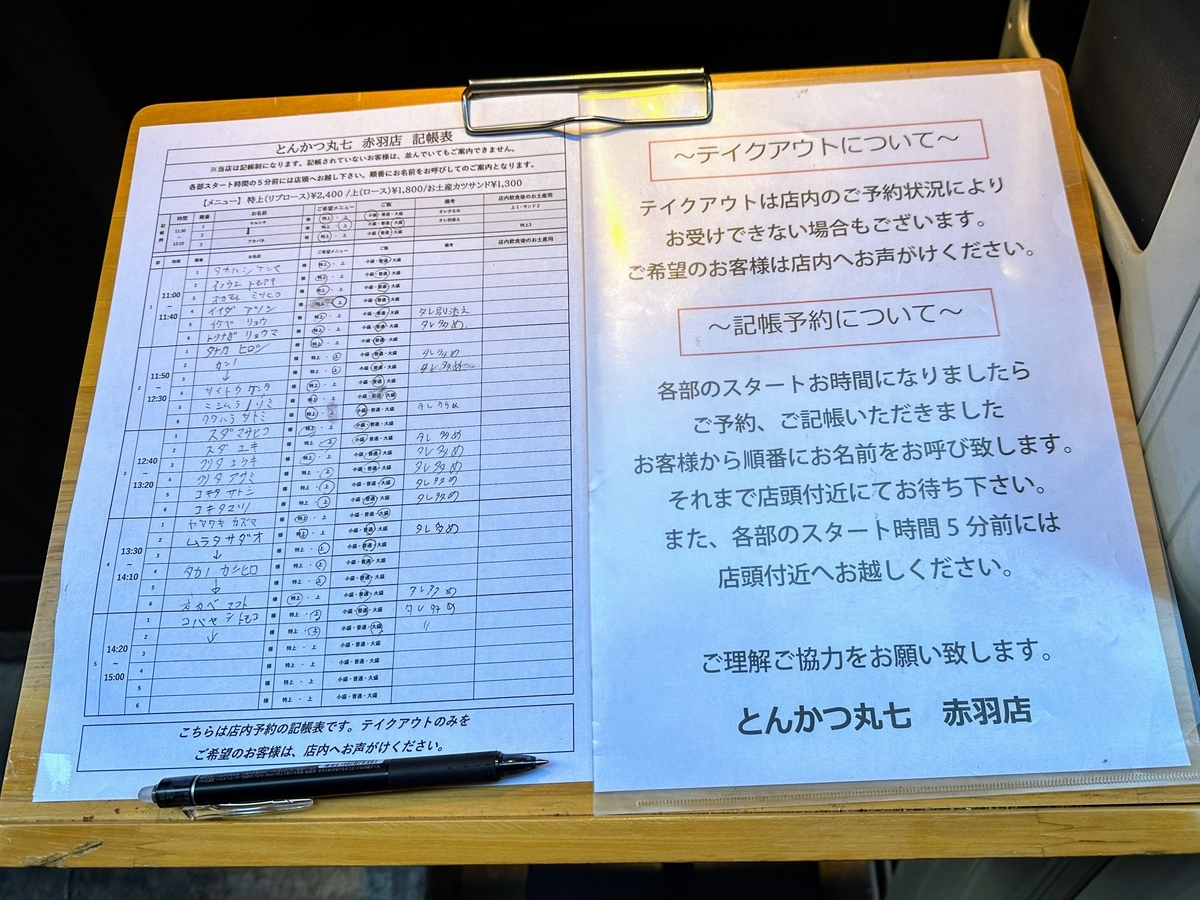 とんかつ丸七 赤羽店 記帳表
※当店は記帳制になります。記帳されていないお客様は、並んでいてもご案内できません。
各部スタート時間の5分前には店頭へお越し下さい。順番にお名前をお呼びしてのご案内となります。
【メニュー】特上(リブロース)¥2,400/上(ロース)¥1,800/お土産カツサンド¥1,300
記帳例 時間 順番 お名前 ご希望メニュー ご飯 備考 店内飲食後のお土産用
11:30～12:10
1 マルシチ 様 特上・上 小盛・普通・大盛 タレ少なめ 上1・サンド2
2 様 特上・上 小盛・普通・大盛 タレ別添え
3 アカバネ 様 特上・上 小盛・普通・大盛 特上3
部 時間 順番 お名前 ご希望メニュー ご飯 備考 店内飲食後のお土産用
1 11:00～11:40
1 タカハシ 様 特上・上 小盛・普通・大盛
2 イノウエ トモアキ 様 特上・上 小盛・普通・大盛
3 オカモト ミツヒロ 様 特上・上 小盛・普通・大盛
4 イイダ アツシ 様 特上・上 小盛・普通・大盛 タレ別添え
5 リョウ 様 特上・上 小盛・普通・大盛 タレ多め
6 トクナガ リョウマ 様 特上・上 小盛・普通・大盛
2 11:50～12:30
1 タナカ ヒロシ 様 特上・上 小盛・普通・大盛 タレ多め
2 様 特上・上 小盛・普通・大盛 タレ多め
3 ↓ 様 特上・上 小盛・普通・大盛
4 サイトウ ケンタ 様 特上・上 小盛・普通・大盛
5 ニシムラ ノゾミ 様 特上・上 小盛・普通・大盛 タレ多め
6 クワハラ サトミ 様 特上・上 小盛・普通・大盛
3 12:40～13:20
1 スダ マサヒコ 様 特上・上 小盛・普通・大盛 タレ多め
2 スダ ユキ 様 特上・上 小盛・普通・大盛 タレ多め
3 クリタ ユウキ 様 特上・上 小盛・普通・大盛 タレ多め
4 クリタ アサミ 様 特上・上 小盛・普通・大盛 タレ多め
5 コキタ サトシ 様 特上・上 小盛・普通・大盛 タレ多め
6 コキタ マリ 様 特上・上 小盛・普通・大盛
4 13:30～14:10
1 ヤマワキ カズマ 様 特上・上 小盛・普通・大盛 タレ多め
2 ムラタ サダオ 様 特上・上 小盛・普通・大盛
3 ↓ 様 特上・上 小盛・普通・大盛
4 タカノ カシヒロ 様 特上・上 小盛・普通・大盛
5 ↓ 様 特上・上 小盛・普通・大盛
6 オカベ マコト 様 特上・上 小盛・普通・大盛 タレ多め
5 14:20～15:00
1 コバヤシ トモコ 様 特上・上 小盛・普通・大盛 タレ多め
2 ↓ 様 特上・上 小盛・普通・大盛 〃
3 様 特上・上 小盛・普通・大盛
4 様 特上・上 小盛・普通・大盛
5 様 特上・上 小盛・普通・大盛
6 様 特上・上 小盛・普通・大盛
こちらは店内予約の記帳表です。テイクアウトのみを
ご希望のお客様は、店内へお声がけください。
～テイクアウトについて～
テイクアウトは店内のご予約状況により
お受けできない場合もございます。
ご希望のお客様は店内へお声がけください。
～記帳予約について～
各部のスタートお時間になりましたら
ご予約、ご記帳いただきました
お客様から順番にお名前をお呼び致します。
それまで店頭付近にてお待ち下さい。
また、各部のスタート時間5分前には
店頭付近へお越しください。
ご理解ご協力をお願い致します。
とんかつ丸七 赤羽店